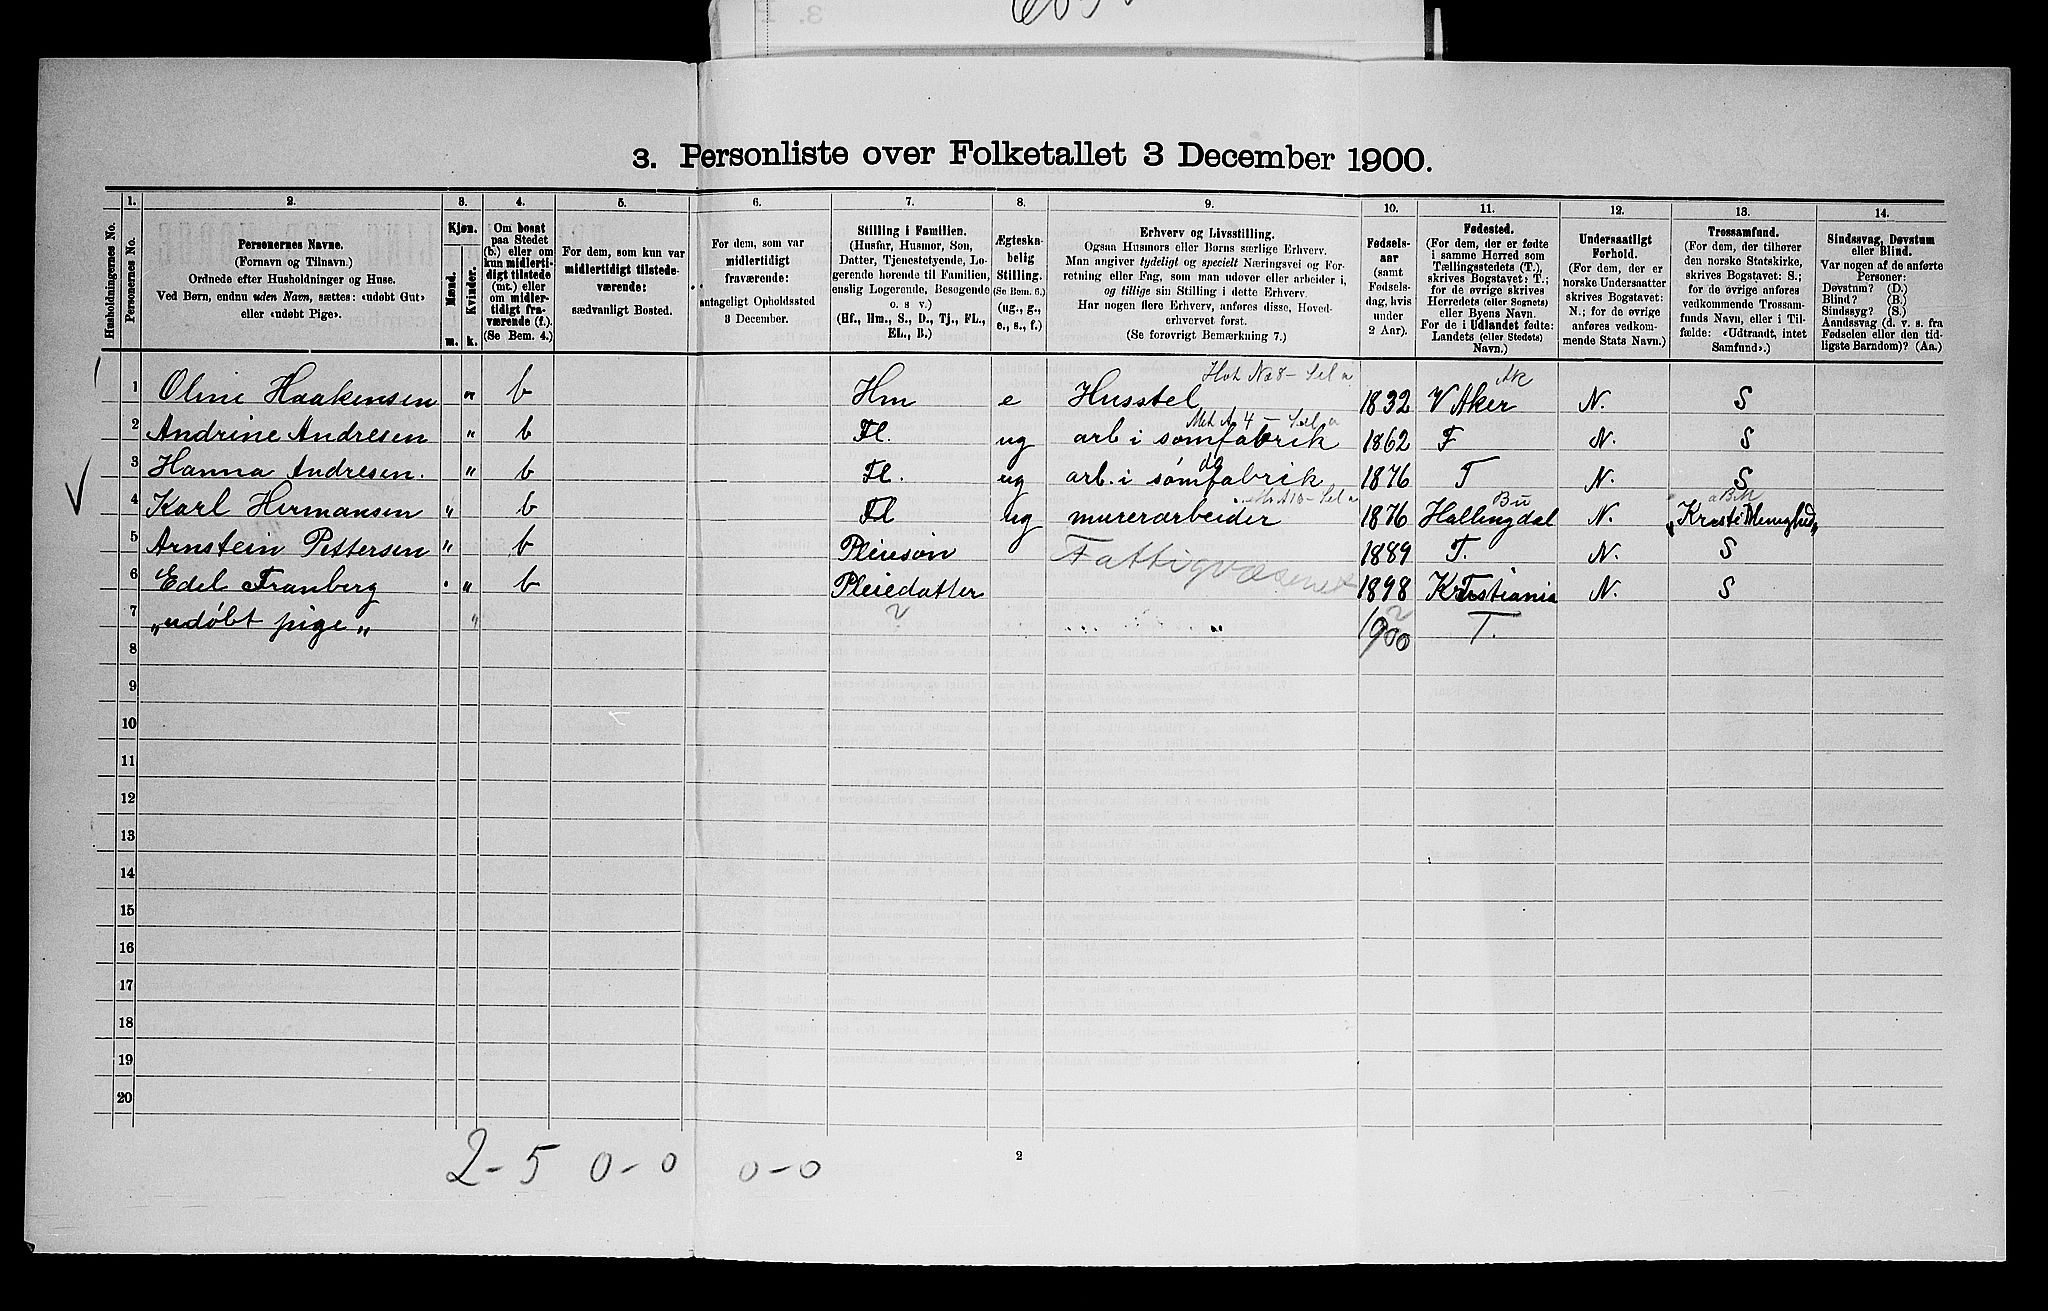 3. Personliste over Folketallet 3 December 1900.
Husholdningernes No.
1.
Personernes No.
2.
Personernes Navne.
(Fornavn og Tilnavn.)
Ordnede efter Husholdninger og Huse.
Ved Børn, endnu uden Navn, sættes: «udøbt Gut»
eller «udøbt Pige».
3.
Kjøn.
Mænd.
m.
Kvinder.
k.
4.
Om bosat
paa Stedet
(b.) eller om
kun midler-
tidigt tilstede
(mt.) eller
om midler-
tidigt fra-
værende (f.).
(Se Bem. 4.)
5.
For dem, som kun var
midlertidigt tilstede-
værende:
sædvanligt Bosted.
6.
For dem, som var
midlertidigt
fraværende:
antageligt Opholdssted
3 December.
7.
Stilling i Familien.
(Husfar, Husmor, Søn,
Datter, Tjenestetyende, Lo-
gerende hørende til Familien,
enslig Logerende, Besøgende
o. s v.)
(Hf., Hm., S., D., Tj., FL.,
EL., B.)
8.
Ægteska-
belig
Stilling.
(Se Bem. 6.)
(ug., g.,
e., s., f.)
9.
Erhverv og Livsstilling.
Ogsaa Husmors eller Børns særlige Erhverv.
Man angiver tydeligt og specielt Næringsvei og For-
retning eller Fag, som man udøver eller arbeider i,
og tillige sin Stilling i dette Erhverv.
Har nogen flere Erhverv, anføres disse, Hoved-
erhvervet først.
(Se forøvrigt Bemærkning 7.)
10.
Fødsels-
aar
(samt
Fødsels-
dag, hvis
under
2 Aar).
11.
Fødested.
(For dem, der er fødte
i samme Herred som
Tællingsstedets (T.),
skrives Bogstavet: T.;
for de øvrige skrives
Herredets (eller Sognets)
eller Byens Navn.
For de i Udlandet fødte:
Landets (eller Stedets)
Navn.)
12.
Undersaatligt
Forhold.
(For dem, der er
norske Undersaatter
skrives Bogstavet:
N.; for de øvrige
anføres vedkom-
mende Stats Navn.)
13.
Trossamfund.
(For dem, der tilhører
den norske Statskirke,
skrives Bogstavet: S.;
for de øvrige anføres
vedkommende Trossam-
funds Navn, eller i Til-
fælde: «Udtraadt, intet
Samfund».)
14.
Sindssvag, Døvstum
eller Blind.
Var nogen af de anførte
Personer:
Døvstum? (D.)
Blind? (B.)
Sindssyg? (S.)
Aandssvag (d. v. s. fra
Fødselen eller den tid-
ligste Barndom)? (Aa.)
1 Oline Haakensen " b Hm e Husstel 1832 V Aker Ak N. S
2 Andrine Andresen " b Fl. ug arb i sømfabrik 1862 T N. S
3 Hanna Andresen. " b Fl. ug arb. i sømfabrik do 1876 T N. S
4 Karl Hermansen " b Fl ug murerarbeider 1876 Hallingdal Bu N.
5 Arnstein Pettersen " b Pleiesøn Fattigvæsenet 1889 T. N. S
6 Edel Franberg " b Pleiedatter 1898 Kristiania N. S
7 „udøbt pige„ " ? " 1900 T.
8
9
10
11
12
13
14
15
16
17
18
19
20
2-5 0-0 0-0
2